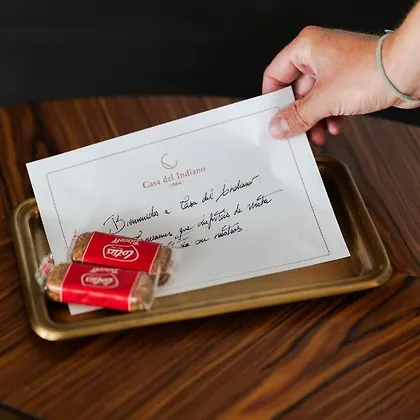 Casa del Indiano
Bienvenidos a Casa del Indiano
que disfrutéis de vuestra
con nosotros
Lotus
Biscoff
Lotus
Biscoff